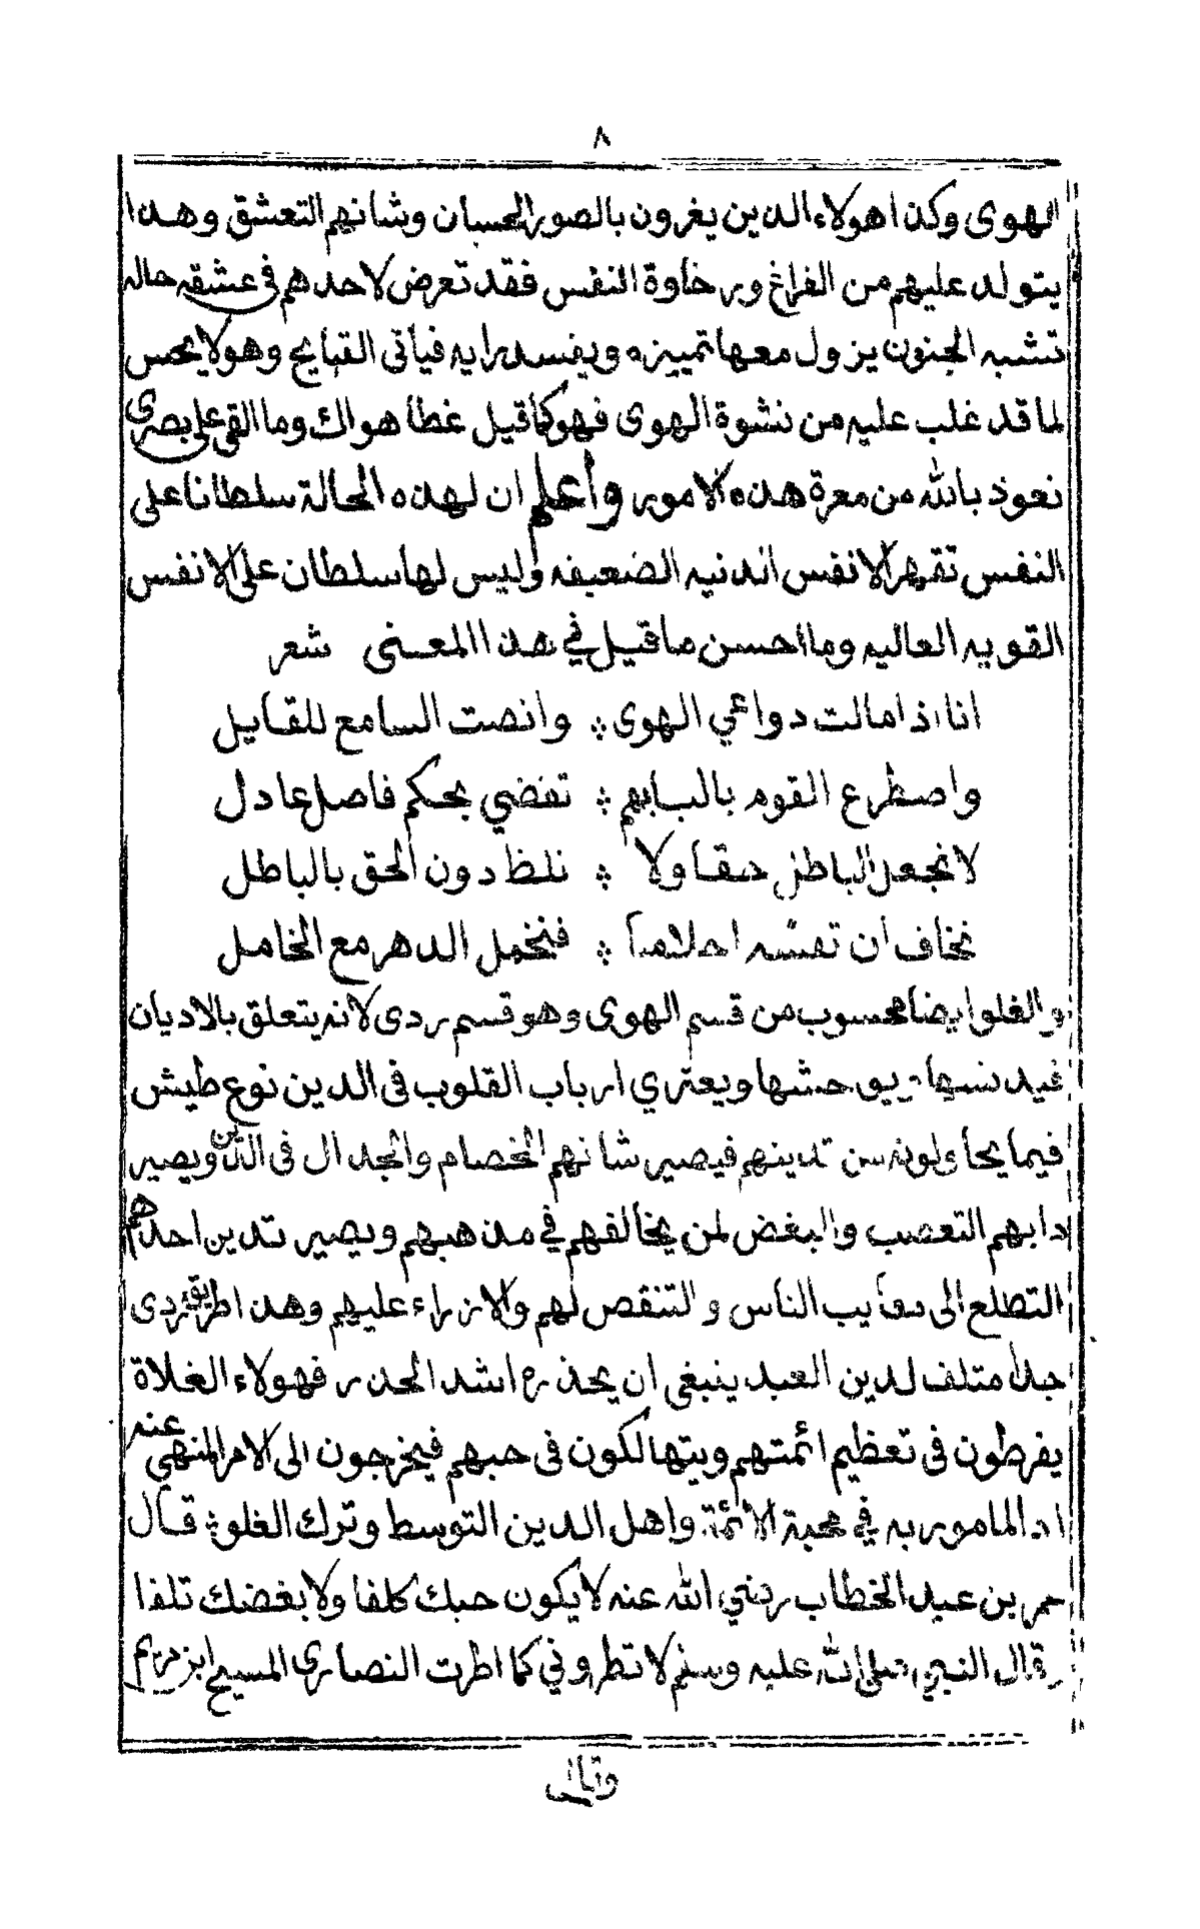 ٨
الهوى وكذا هولاء الذين يغرون بالصور الحسان وشانهم التعشق وهذا
يتولد عليهم من الفراغ ورخاوة النفس فقد تعرض لاحدهم في عشقه حاله
تشبه الجنون يزول معها تمييزه ويفسد رايه فياتى القبايح وهو لا يحس
لما قد غلب عليه من نشوة الهوى فهو كما قيل غطا هواك وما القى على بصرى
نعوذ بالله من معرة هذه الامور وأعلم ان لهذه الحالة سلطانا على
النفس تقهر الانفس الدنيه الضعيفه وليس لها سلطان على الانفس
القويه العاليه وما احسن ما قيل في هذا المعنى شعر
انا اذا مالت دواعي الهوى ∴ وانصت السامع للقايل
واصطرع القوم بالبابهم ∴ تقضي بحكم فاصل عادل
لا نجعل الباطل حقا ولا ∴ نلظ دون الحق بالباطل
نخاف ان تفسه احلامنا ∴ فنخمل الدهر مع الخامل
والغلو ايضا محسوب من قسم الهوى وهو قسم ردى لانه يتعلق بالاديان
ويعتري ارباب القلوب فى الدين نوع طيش
فيما يحاولونه من تدينهم فيصير شانهم الخصام والجدال فى الدين ويصير
دابهم التعصب والبغض لمن يخالفهم في مذهبهم ويصير تدين احدهم
التطلع الى معايب الناس والتنقص لهم والازراء عليهم وهذا طريق ردى
جدا متلف لدين العبد ينبغى ان يحذره اشد الحذر فهولاء الغلاة
يفرطون فى تعظيم ائمتهم ويتهالكون فى حبهم فيخرجون الى الامر المنهي عنه
المامور به في محبة الائمة واهل الدين التوسط وترك الغلو قال
عمر بن عبد الخطاب رضي الله عنه لا يكون حبك كلفا ولا بغضك تلفا
وقال النبي صلى الله عليه وسلم لا تطروني كما اطرت النصارى المسيح ابن مريم
وقال